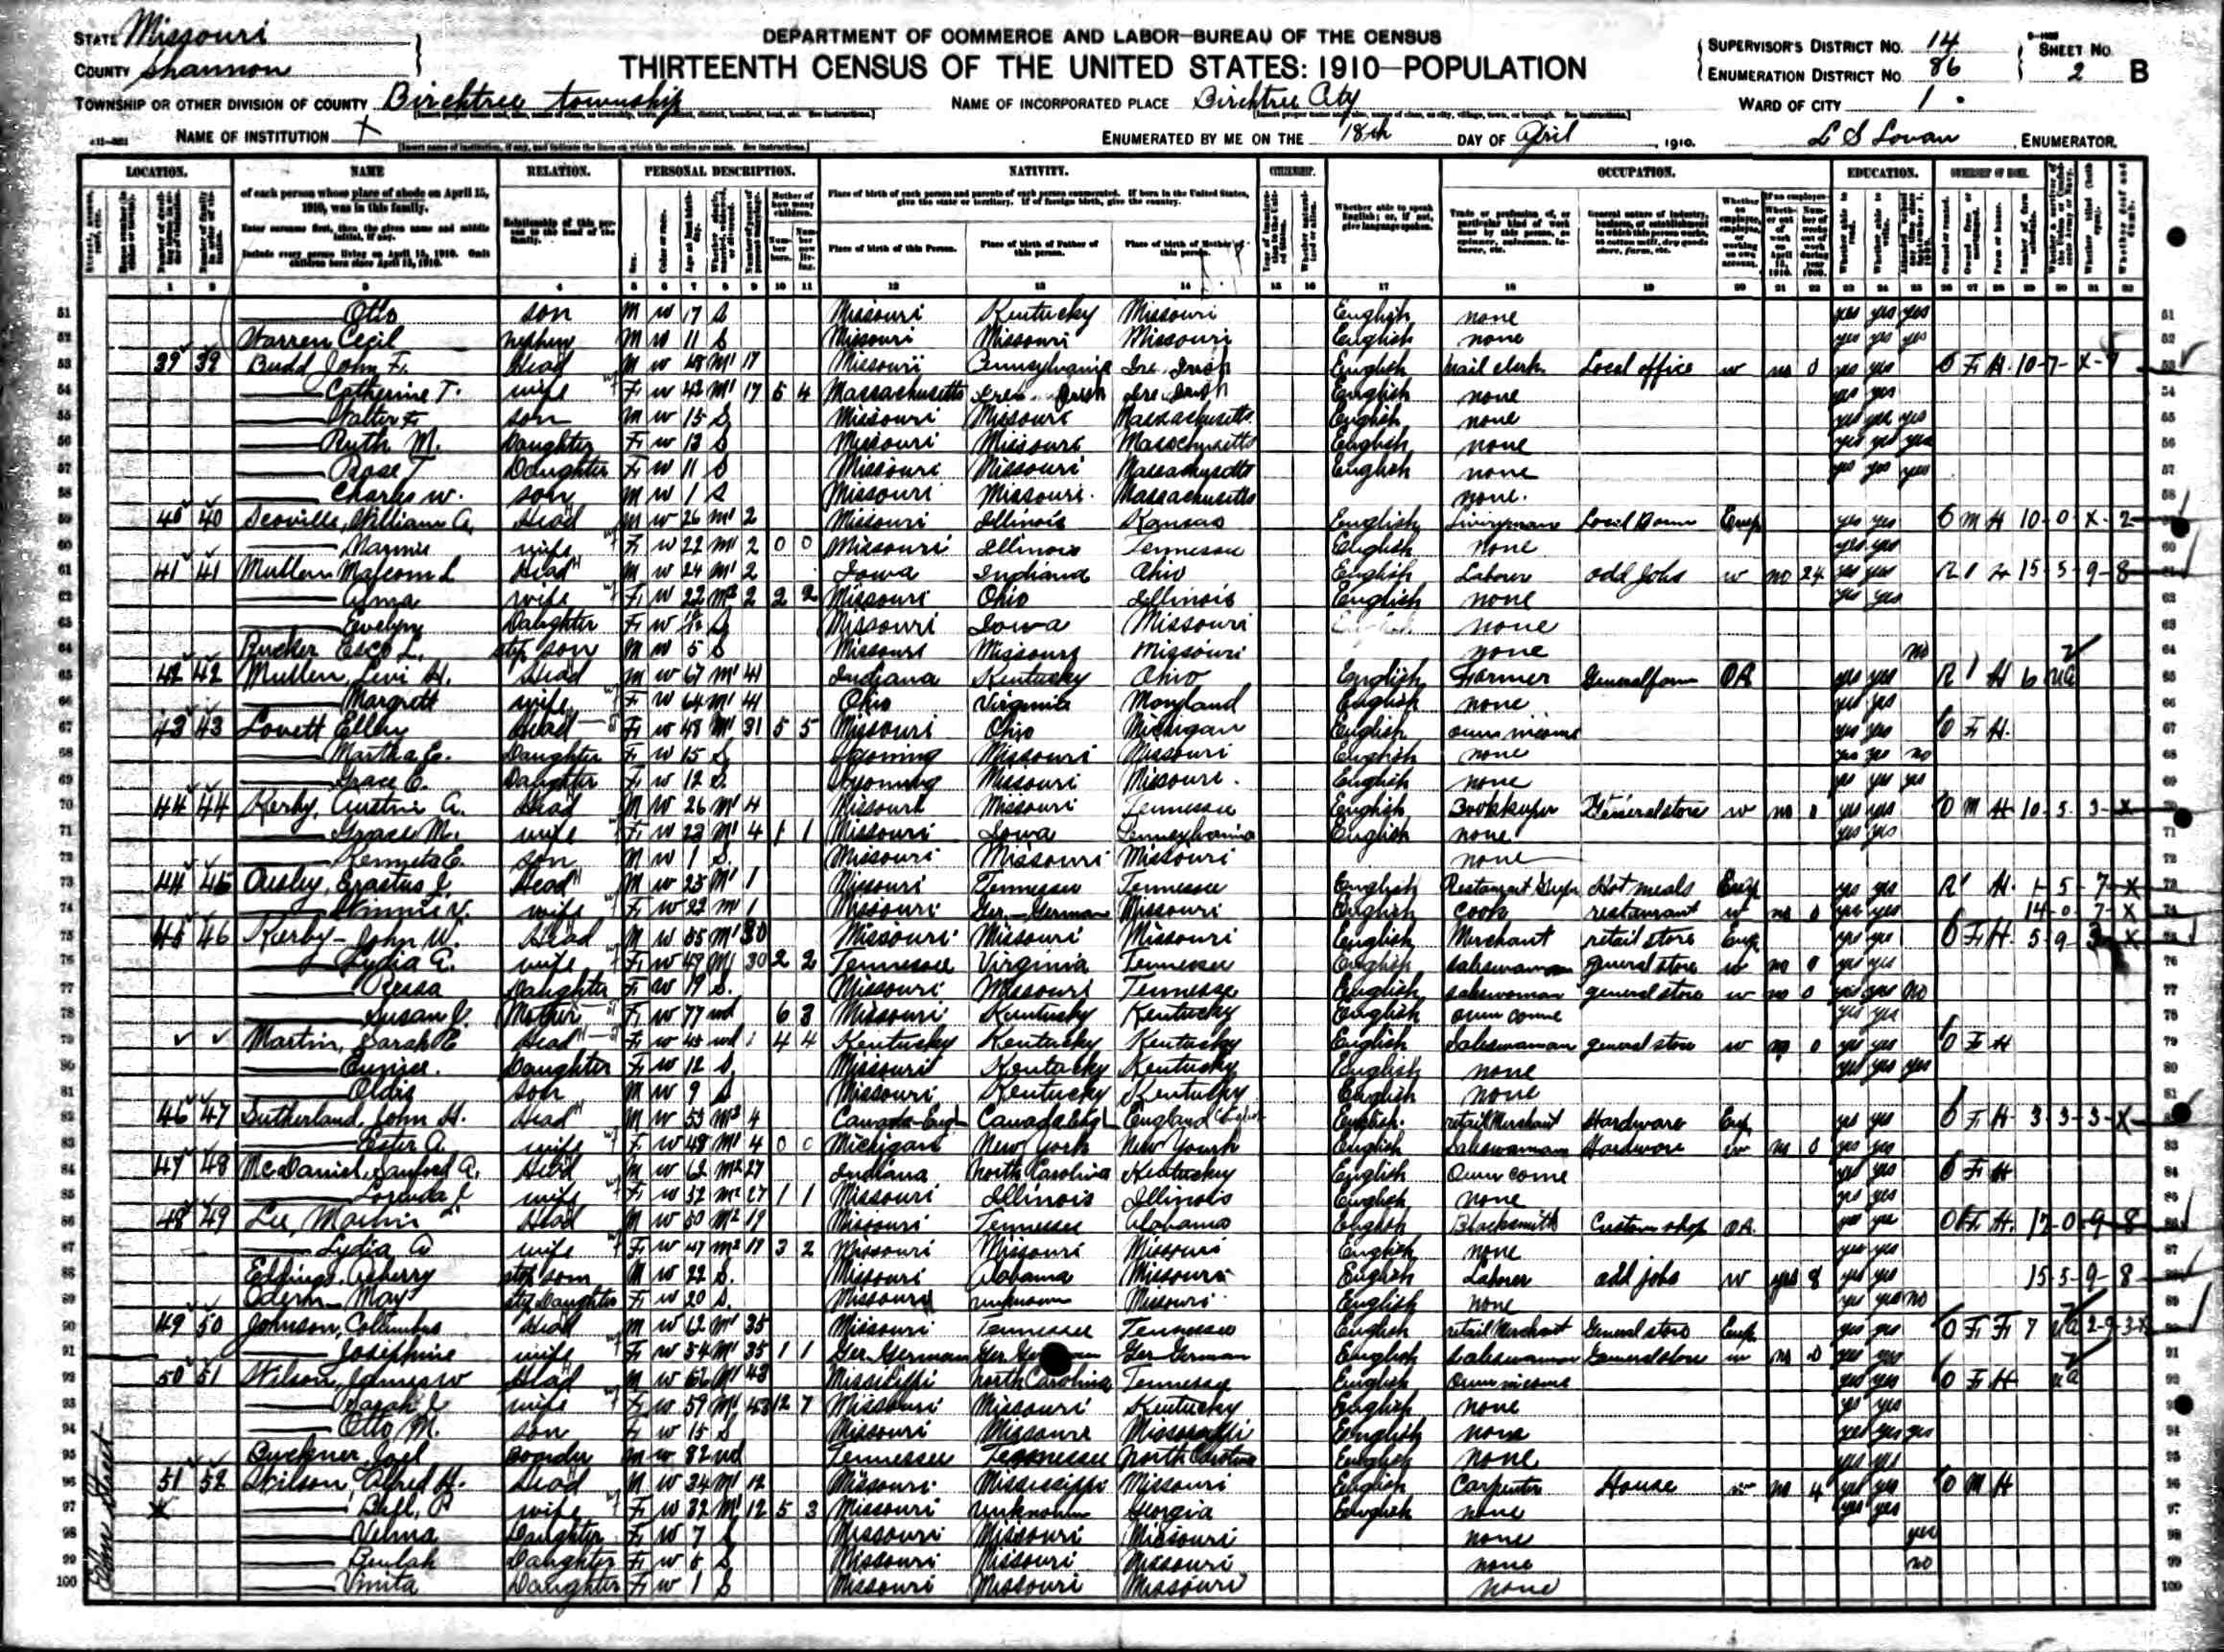 STATE Missouri
COUNTY Shannon
DEPARTMENT OF COMMERCE AND LABOR—BUREAU OF THE CENSUS
THIRTEENTH CENSUS OF THE UNITED STATES: 1910—POPULATION
SUPERVISOR'S DISTRICT NO. 14
ENUMERATION DISTRICT NO. 86
SHEET NO. 2 B
TOWNSHIP OR OTHER DIVISION OF COUNTY Birchtree township
NAME OF INCORPORATED PLACE Birchtree City
WARD OF CITY 1
NAME OF INSTITUTION X
ENUMERATED BY ME ON THE 18th DAY OF April, 1910.
L S Lovan, ENUMERATOR.
LOCATION. NAME RELATION. PERSONAL DESCRIPTION. NATIVITY. CITIZENSHIP. OCCUPATION. EDUCATION. OWNERSHIP OF HOME.
of each person whose place of abode on April 15, 1910, was in this family.
Enter surname first, then the given name and middle initial, if any.
Include every person living on April 15, 1910. Omit children born since April 15, 1910.
Relationship of this person to the head of the family.
Place of birth of each person and parents of each person enumerated. If born in the United States, give the state or territory. If of foreign birth, give the country.
Place of birth of this Person. Place of birth of Father of this person. Place of birth of Mother of this person.
Whether able to speak English; or, if not, give language spoken.
51 Otto son M W 17 S Missouri Kentucky Missouri English none yes yes yes
52 Warren Cecil nephew M W 11 S Missouri Missouri Missouri English none yes yes yes
53 39 39 Budd John F. Head M W 48 M1 17 Missouri Pennsylvania Ire Irish English mail clerk Local office W no 0 yes yes O F H 10-7-X-7
54 Catherine T. wife F W 42 M1 17 5 4 Massachusetts Ire Irish Ire Irish English none yes yes
55 Walter F. son M W 15 S Missouri Missouri Massachusetts English none yes yes yes
56 Ruth M. Daughter F W 13 S Missouri Missouri Massachusetts English none yes yes yes
57 Rose T Daughter F W 11 S Missouri Missouri Massachusetts English none yes yes yes
58 Charles W. son M W 1 S Missouri Missouri Massachusetts none
59 40 40 Scoville, William A. Head M W 26 M1 2 Missouri Illinois Kansas English Liveryman Local Barn Emp yes yes O M H 10-0-X-2
60 Mamie wife F W 22 M1 2 0 0 Missouri Illinois Tennessee English none yes yes
61 41 41 Mullen Malcom L Head M W 24 M1 2 Iowa Indiana Ohio English Laborer odd jobs W no 24 yes yes R H 15-5-9-8
62 Alma wife F W 22 2 2 2 Missouri Ohio Illinois English none yes yes
63 Evelyn Daughter F W S Missouri Iowa Missouri none
64 Rucker Esco L. step son M W 5 S Missouri Missouri Missouri none no
65 42 42 Mullen, Levi H. Head M W 67 M1 41 Indiana Kentucky Ohio English Farmer General farm OA yes yes R H 6 UA
66 Margrett wife F W 64 M1 41 Ohio Virginia Maryland English none yes yes
67 43 43 Lovett Ellen Head F W 48 M1 31 5 5 Missouri Ohio Michigan English own income yes yes O F H
68 Martha E. Daughter F W 15 S Wyoming Missouri Missouri English none yes yes no
69 Grace C. Daughter F W 12 S Wyoming Missouri Missouri English none yes yes yes
70 44 44 Kerby, Austin A. Head M W 26 M1 4 Missouri Missouri Tennessee English Bookkeeper General store W no 0 yes yes O M H 10-5-3-X
71 Grace M. wife F W 23 M1 4 1 1 Missouri Iowa Pennsylvania English none yes yes
72 Kenneth E. son M W 1 S Missouri Missouri Missouri none
73 44 45 Ausley, Erastus J. Head M W 25 M1 1 Missouri Tennessee Tennessee English Restaurant Hot meals Emp yes yes R H 1-5-7-X
74 Winnie V. wife F W 22 M1 1 Missouri Ger. German Missouri English Cook restaurant W no 0 yes yes 14-0-7-X
75 45 46 Kerby John W. Head M W 55 M1 30 Missouri Missouri Missouri English Merchant retail store Emp yes yes O F H 5-9-3-X
76 Lydia A. wife F W 49 M1 30 2 2 Tennessee Virginia Tennessee English Saleswoman general store W no 0 yes yes
77 Ressa Daughter F W 19 S Missouri Missouri Tennessee English saleswoman general store W no 0 yes yes no
78 Susan J. Mother F W 77 wd 6 3 Missouri Kentucky Kentucky English own come yes yes
79 Martin, Sarah E Head F W 45 wd 4 4 Kentucky Kentucky Kentucky English Saleswoman general store W no 0 yes yes O F H
80 Eunice Daughter F W 12 S Missouri Kentucky Kentucky English none yes yes yes
81 Oldis son M W 9 S Missouri Kentucky Kentucky English none
82 46 47 Sutherland, John H. Head M W 53 4 Canada-Engl Canada Engl England English English retail Merchant Hardware Emp yes yes O F H 3-3-3-X
83 Ester A. wife F W 48 M1 4 0 0 Michigan New York New Yourk English Saleswoman Hardware W no 0 yes yes
84 47 48 McDaniel, Sanford A. Head M W 62 M2 27 Indiana North Carolina Kentucky English Own come yes yes O F H
85 Lorinda J. wife F W 52 M2 27 1 1 Missouri Illinois Illinois English none yes yes
86 48 49 Lee, Martin Head M W 50 M2 19 Missouri Tennessee Alabama English Blacksmith Custom shop OA yes yes O F H 12-0-9-8
87 Lydia A wife F W 47 M2 19 3 2 Missouri Missouri Missouri English none yes yes
88 Eddings, Asberry step son M W 22 S Missouri Alabama Missouri English Laborer odd jobs W yes 8 yes yes 15-5-9-8
89 May step Daughter F W 20 S Missouri unknown Missouri English none yes yes no
90 49 50 Johnson, Columbus Head M W 62 M1 35 Missouri Tennessee Tennessee English retail Merchant General store Emp yes yes O F F 7 UA
91 Josephine wife F W 54 M1 35 1 1 Ger. German Ger. Ger. German English Saleswoman General store W no 0 yes yes
92 50 51 Wilson, James W Head M W M1 43 Mississippi North Carolina Tennessee English Own income yes yes O F H UA
93 Sarah J. wife F W 59 M1 43 12 7 Missouri Missouri Kentucky English none yes yes
94 Otto M. son 15 S Missouri Missouri Mississippi English none yes yes yes
95 Buckner, Joel Boarder M W 82 wd Tennessee Tennessee North Carolina English none yes yes
96 51 52 Wilson, Alfred H. Head M W 34 M1 12 Missouri Mississippi Missouri English Carpenter House W no 4 yes yes O M H
97 Bell, P wife F W 32 M1 12 5 3 Missouri unknown Georgia English none yes yes
98 Velma Daughter F W 7 S Missouri Missouri Missouri none yes
99 Beulah Daughter F W S Missouri Missouri Missouri none no
100 Vinita Daughter F W 1 S Missouri Missouri Missouri none
Elm Street